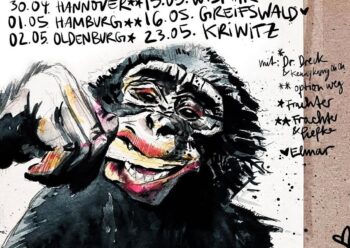 30.04 HANNOVER**
01.05 HAMBURG** 16.05. GREIFSWALD♥
02.05 OLDENBURG* 23.05. KRiWiTZ
mit: Dr. Dreck
&
** option weg
* Früchter
** Früchte
& Piefke
♥ Elmar